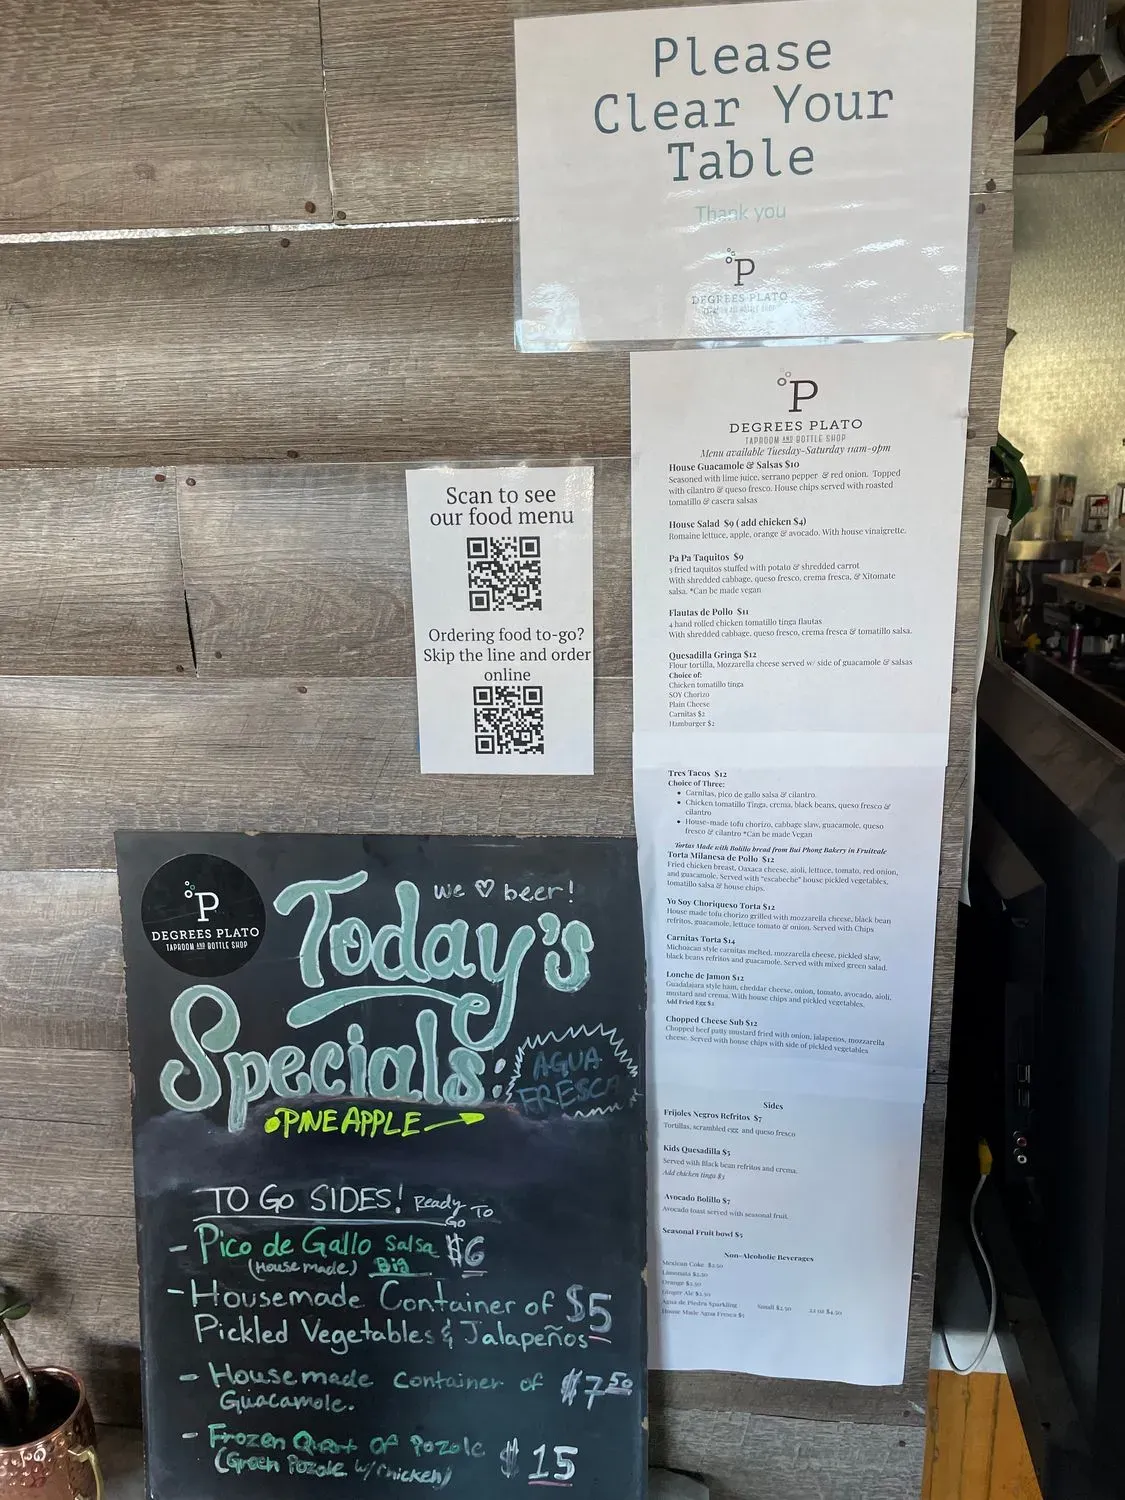 Please
Clear Your
Table
Thank you
P
DEGREES PLATO
TAPROOM AND BOTTLE SHOP
P
DEGREES PLATO
TAPROOM AND BOTTLE SHOP
Menu available Tuesday-Saturday 11am-9pm
House Guacamole & Salsas $10
Seasoned with lime juice, serrano pepper & red onion. Topped
with cilantro & queso fresco. House chips served with roasted
tomatillo & casera salsas
House Salad $9 ( add chicken $4)
Romaine lettuce, apple, orange & avocado. With house vinaigrette.
Pa Pa Taquitos $9
3 fried taquitos stuffed with potato & shredded carrot
With shredded cabbage, queso fresco, crema fresca, & Xitomate
salsa. *Can be made vegan
Flautas de Pollo $11
4 hand rolled chicken tomatillo tinga flautas
With shredded cabbage, queso fresco, crema fresca & tomatillo salsa.
Quesadilla Gringa $12
Flour tortilla, Mozzarella cheese served w/ side of guacamole & salsas
Choice of:
Chicken tomatillo tinga
SOY Chorizo
Plain Cheese
Carnitas $2
Hamburger $2
Tres Tacos $12
Choice of Three:
• Carnitas, pico de gallo salsa & cilantro.
• Chicken tomatillo Tinga, crema, black beans, queso fresco &
cilantro
• House-made tofu chorizo, cabbage slaw, guacamole, queso
fresco & cilantro *Can be made Vegan
Tortas Made with Bolillo bread from Bui Phong Bakery in Fruitvale
Torta Milanesa de Pollo $12
Fried chicken breast, Oaxaca cheese, aioli, lettuce, tomato, red onion,
and guacamole. Served with "escabeche" house pickled vegetables,
tomatillo salsa & house chips.
Yo Soy Choriqueso Torta $12
House made tofu chorizo grilled with mozzarella cheese, black bean
refritos, guacamole, lettuce tomato & onion. Served with Chips
Carnitas Torta $14
Michoacan style carnitas melted, mozzarella cheese, pickled slaw,
black beans refritos and guacamole. Served with mixed green salad.
Lonche de Jamon $12
Guadalajara style ham, cheddar cheese, onion, tomato, avocado, aioli,
mustard and crema. With house chips and pickled vegetables.
Add Fried Egg $2
Chopped Cheese Sub $12
Chopped beef patty mustard fried with onion, jalapenos, mozzarella
cheese. Served with house chips with side of pickled vegetables
Sides
Frijoles Negros Refritos $7
Tortillas, scrambled egg and queso fresco
Kids Quesadilla $5
Served with Black bean refritos and crema.
Add chicken tinga $3
Avocado Bolillo $7
Avocado toast served with seasonal fruit.
Seasonal Fruit bowl $5
Non-Alcoholic Beverages
Mexican Coke $2.50
Limonata $2.50
Orange $2.50
Ginger Ale $2.50
Agua de Piedra Sparkling Small $2.50 22 oz $4.50
House Made Agua Fresca $5
Scan to see
our food menu
Ordering food to-go?
Skip the line and order
online
P
DEGREES PLATO
TAPROOM AND BOTTLE SHOP
we ♡ beer!
Today's
Specials:
AGUA
FRESCA
• PINEAPPLE →
TO GO SIDES! Ready To
Go
- Pico de Gallo Salsa $6
(House made) Big
- Housemade Container of $5
Pickled Vegetables & Jalapeños
- Housemade Container of $7 50
Guacamole.
- Frozen Quart of Pozole $15
(Green Pozole w/ chicken)